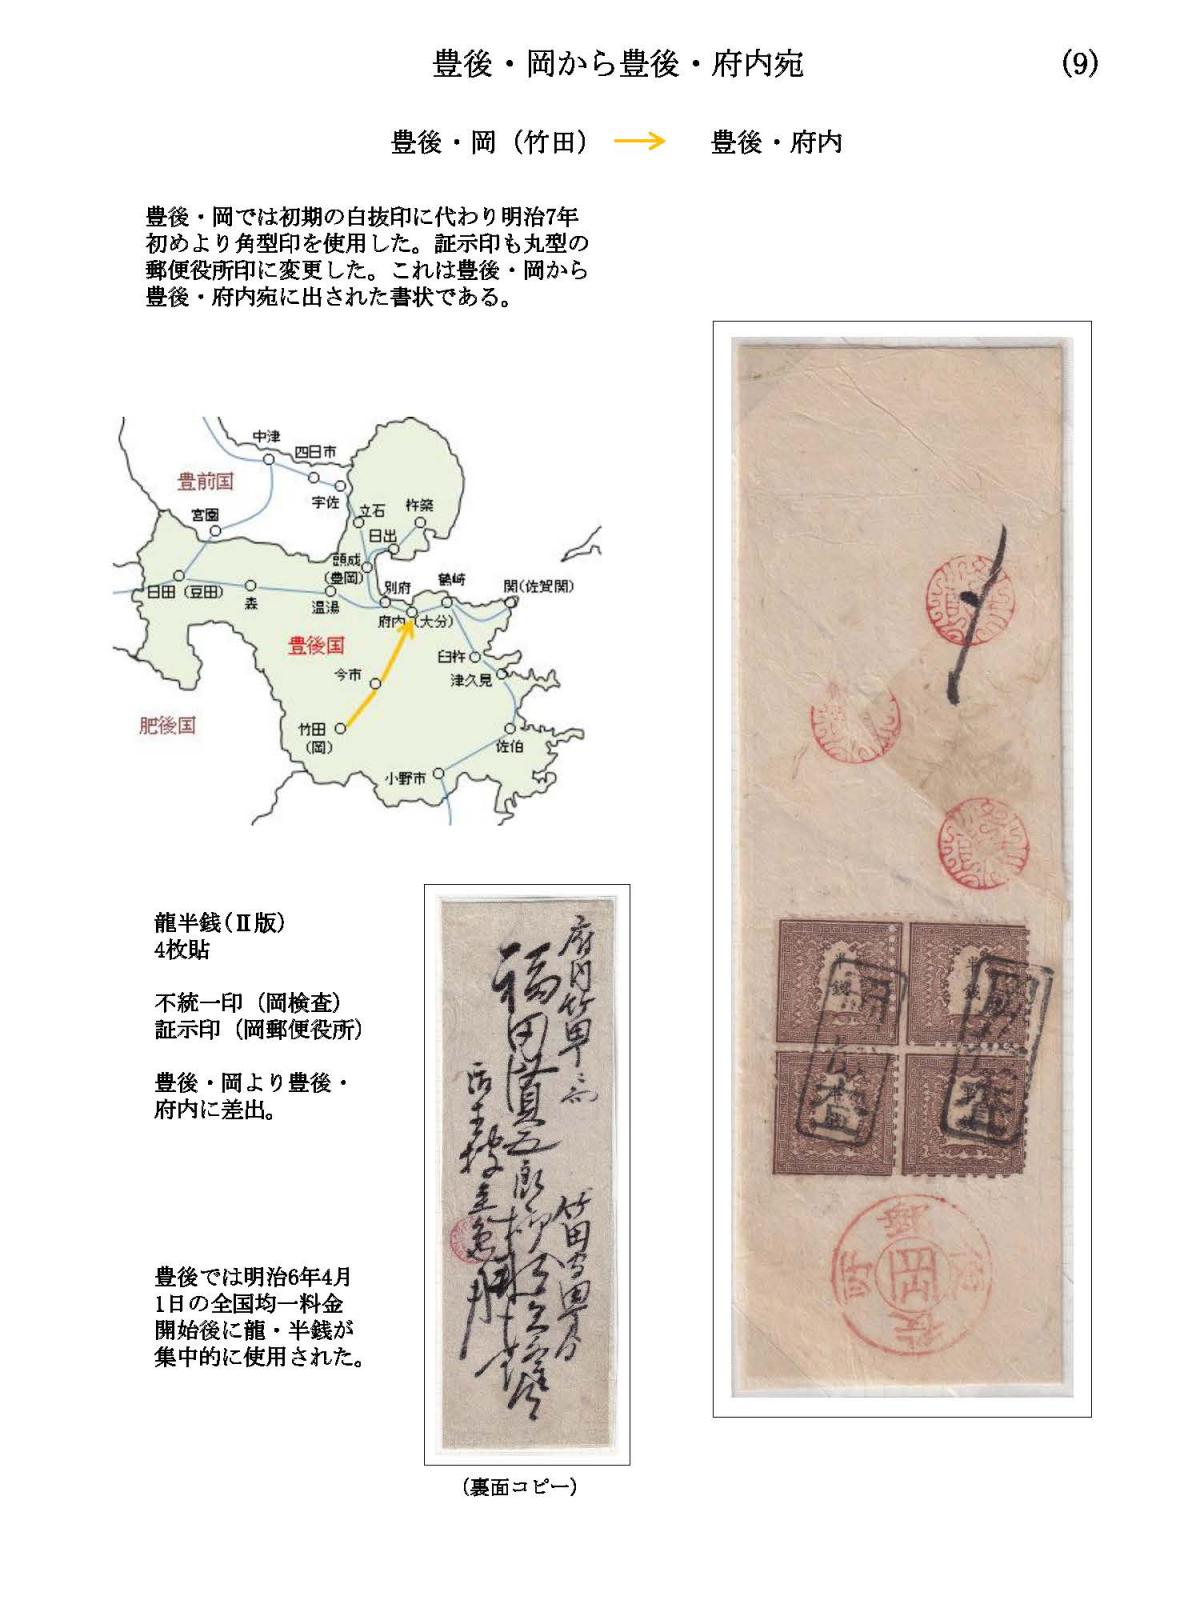 豊後・岡から豊後・府内宛
(9)
豊後・岡（竹田） → 豊後・府内
豊後・岡では初期の白抜印に代わり明治7年
初めより角型印を使用した。証示印も丸型の
郵便役所印に変更した。これは豊後・岡から
豊後・府内宛に出された書状である。
中津
四日市
豊前国
宇佐
宮園
立石
杵築
日出
頭成
(豊岡)
鶴崎
別府
関(佐賀関)
日田（豆田）
森
温湯
府内（大分）
豊後国
臼杵
今市
津久見
肥後国
竹田
(岡)
佐伯
小野市
龍半銭(Ⅱ版)
4枚貼
不統一印（岡検査）
証示印（岡郵便役所）
豊後・岡より豊後・
府内に差出。
豊後では明治6年4月
1日の全国均一料金
開始後に龍・半銭が
集中的に使用された。
(裏面コピー)
半銭
半銭
岡
郵便役所